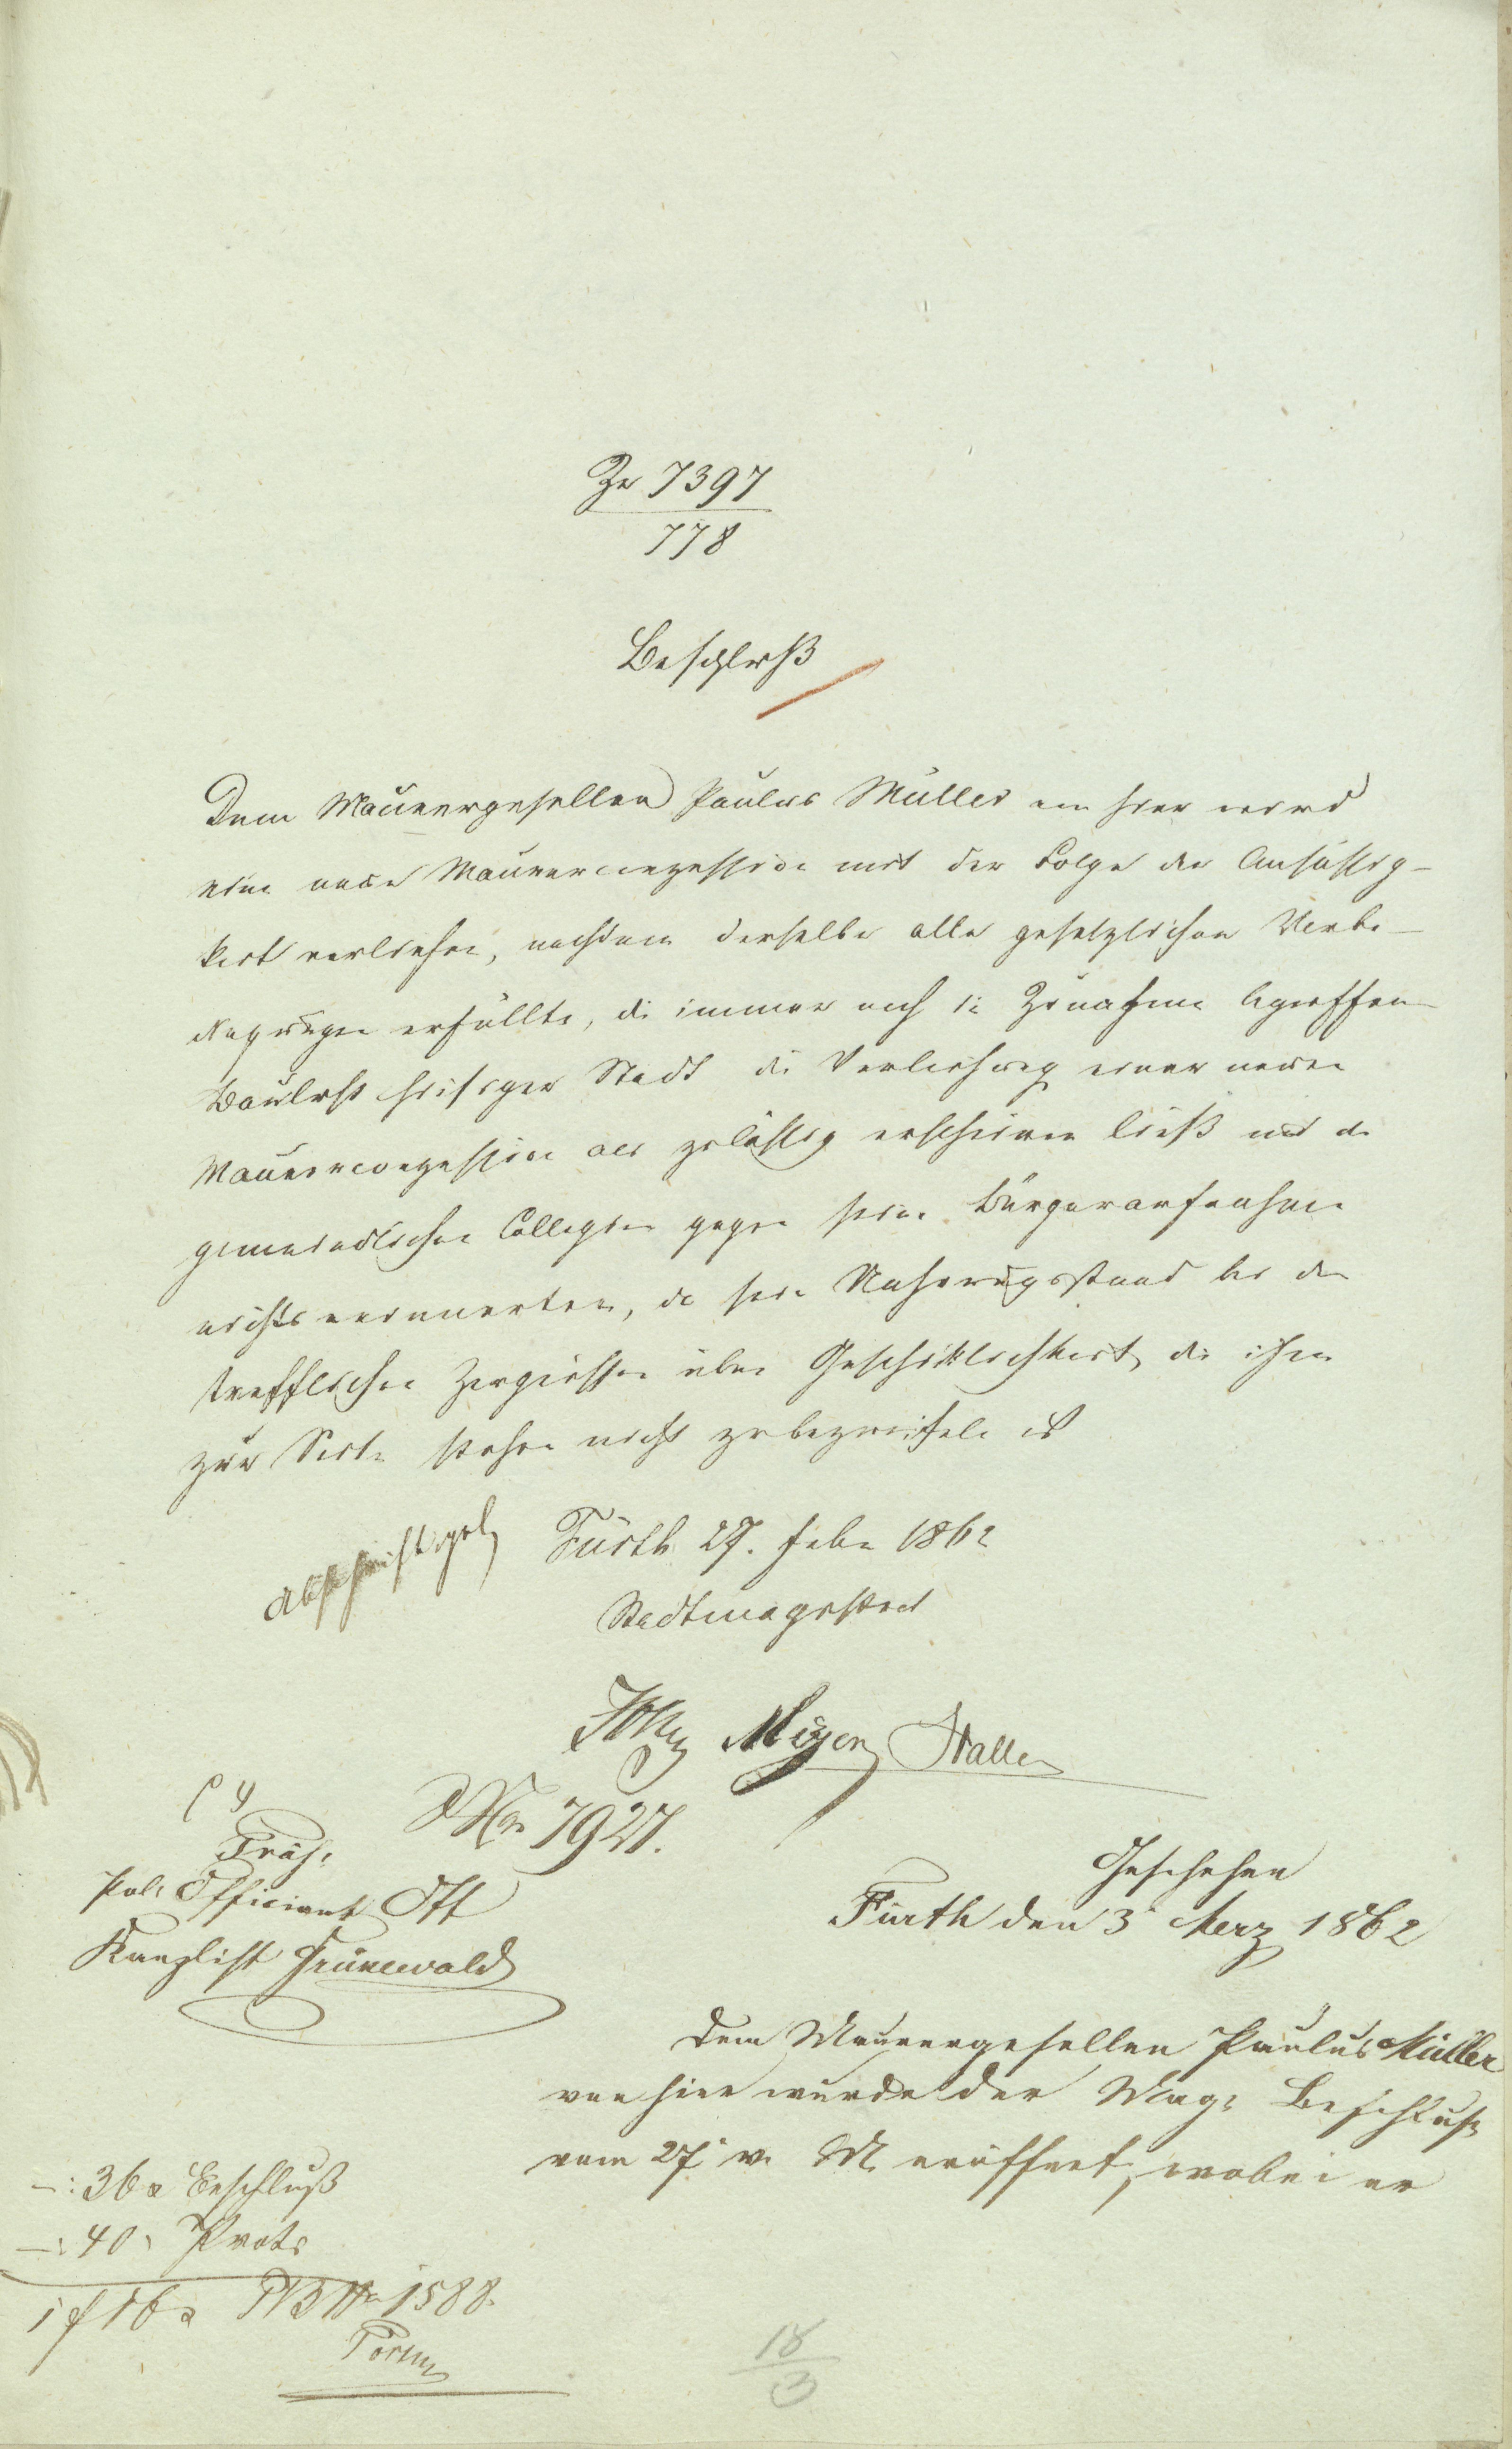 Zu 7397
778
Beschluß
Dem Maurergesellen Paulus Müller von hier wird
eine neue Maurerconzession mit der Folge der Ansässig-
keit verliehen, nachdem derselbe alle gesetzlichen Vorbe-
dingungen erfüllte, die immer noch in Zunahme begriffene
Baulust hiesiger Stadt die Verleihung einer neuen
Maurerconzession als zulässig erscheinen ließ und die
gemeindlichen Collegien gegen seine Bürgeraufnahme
nichts erinnerten, da sein Nahrungsstand bei den
trefflichen Zeugnissen über Geschicklichkeit, die ihm
zur Seite stehen nicht zu bezweifeln ist
Fürth 27. Febr 1862
Stadtmagistrat
Meyer Haller
Nr 7927.
Präs:
Pol: Officiant Ott
Kanzlist Grünewald
Geschehen
Fürth den 3 Merz 1862
Dem Maurergesellen Paulus Müller
von hier wurde der Mag: Beschluß
vom 27 v. M. eröffnet, wobei er
–: 36 x Beschluß
–: 40 Prot:
1 f 16 x Nr 1588.
18
3